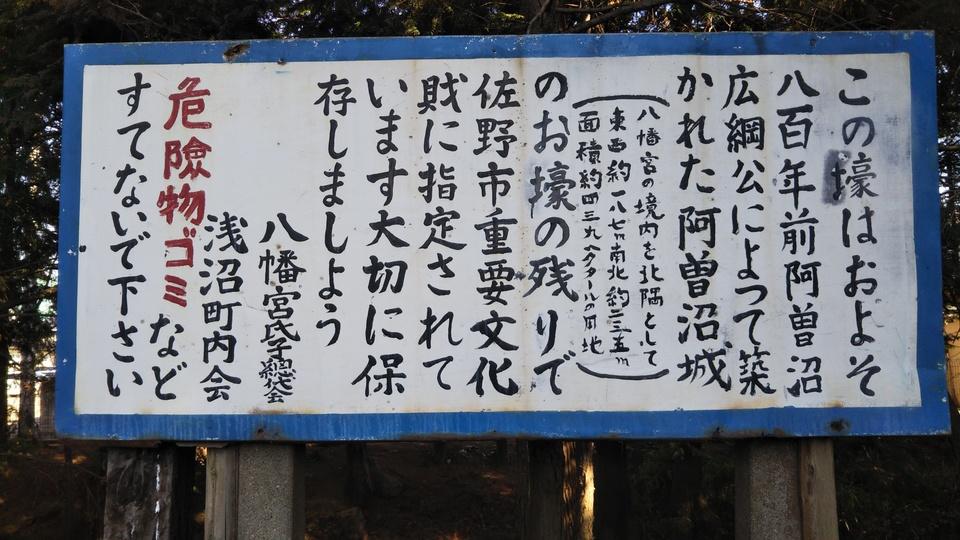 この壕はおよそ
八百年前阿曽沼
広綱公によつて築
かれた阿曽沼城
(八幡宮の境内を北隅として
東西約一八七m南北約二三五m
面積約四三九ヘクタールの 地)
のお壕の残りで
佐野市重要文化
財に指定されて
います大切に保
存しましよう
八幡宮氏子總代会
浅沼町内会
危險物ゴミなど
すてないで下さい